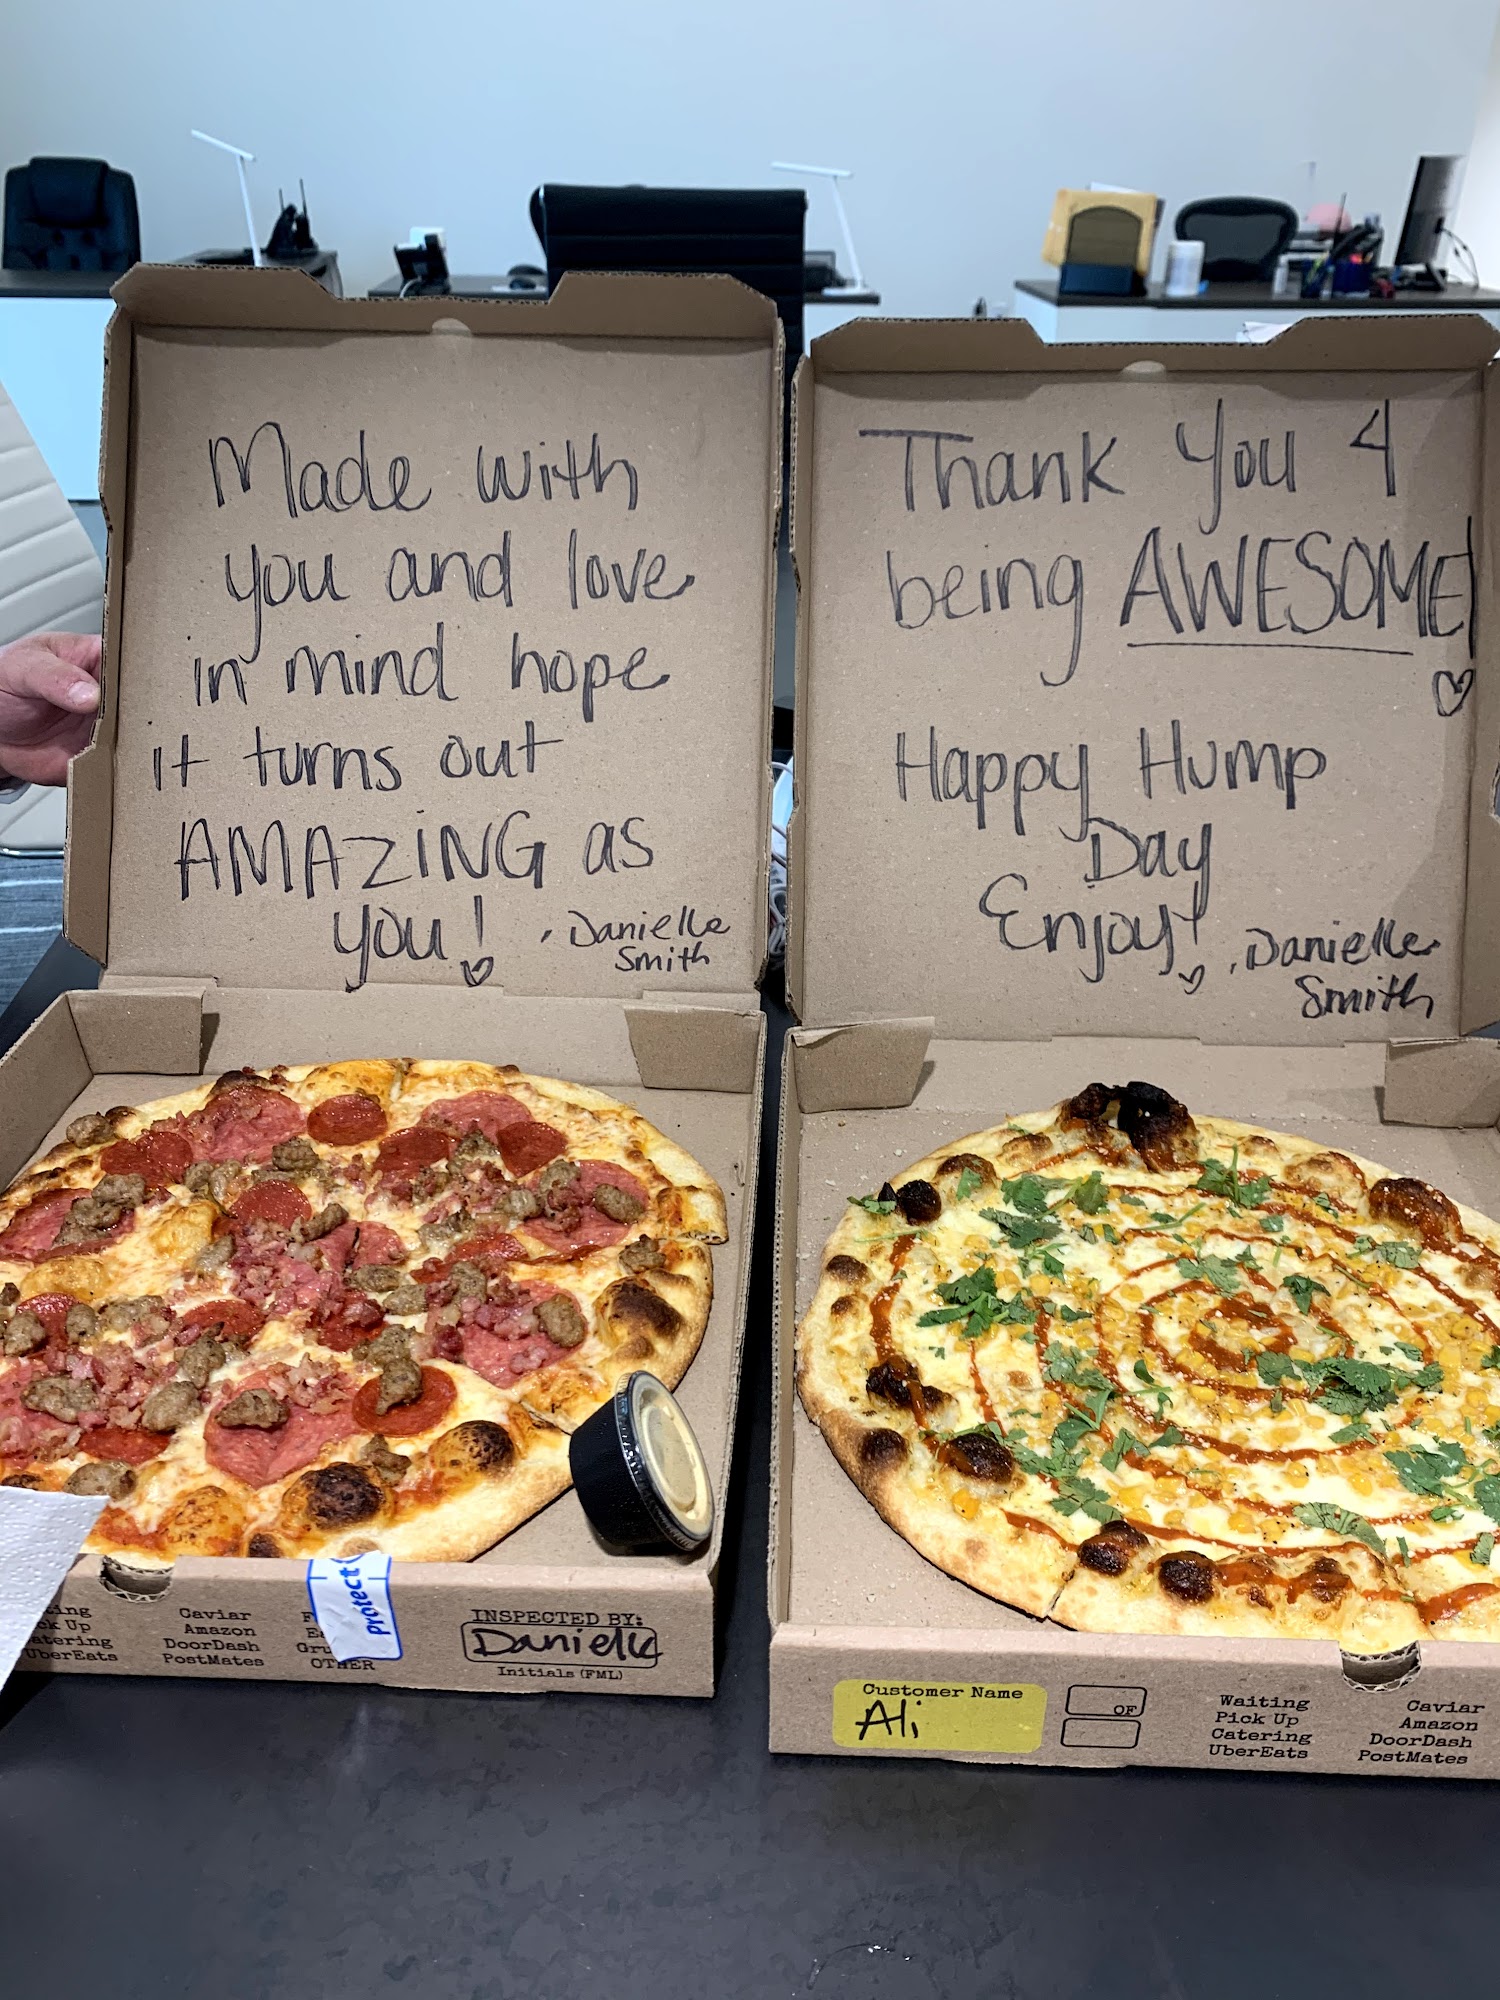 Made with
you and love
in mind hope
it turns out
AMAZiNG as
you!
. Danielle
Smith
Thank You 4
being AWESOME!
Happy Hump
Day
Enjoy!
. Danielle
Smith
Up
Catering
UberEats
Caviar
Amazon
DoorDash
PostMates
OTHER
protect
INSPECTED BY:
Danielle
Initials (FML)
Customer Name
Ali
OF
Waiting
Pick Up
Catering
UberEats
Caviar
Amazon
DoorDash
PostMates